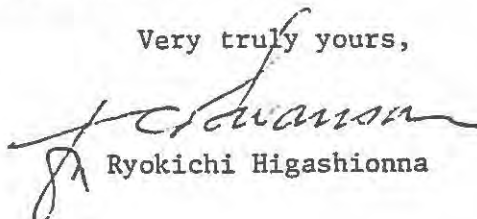 Very truly yours,
Ryokichi Higashionna